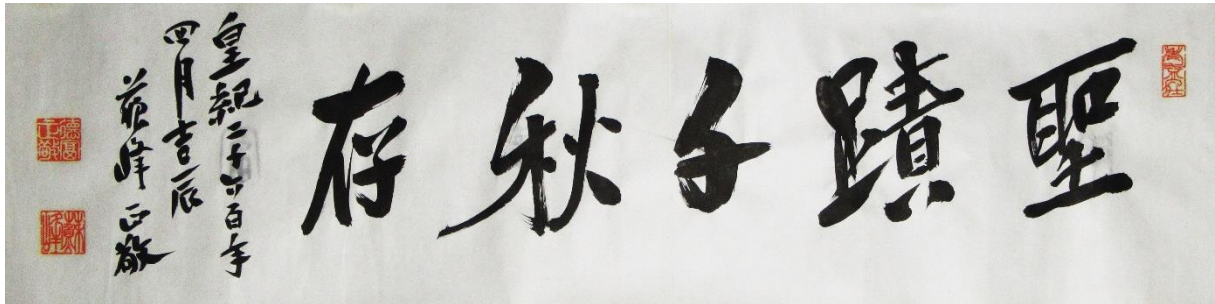 聖蹟千秋存
皇紀二千六百年
四月吉辰
蘇峰正敬